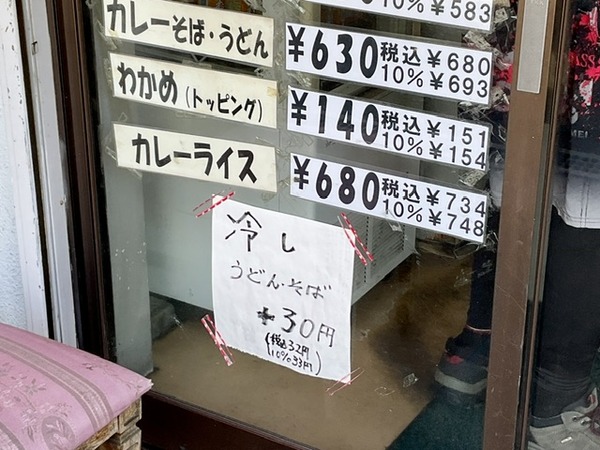 10% ¥583
カレーそば・うどん ¥630 税込 ¥680
10% ¥693
わかめ(トッピング) ¥140 税込 ¥151
10% ¥154
カレーライス ¥680 税込 ¥734
10% ¥748
冷し
うどん・そば
+30円
(税込32円
10%33円)